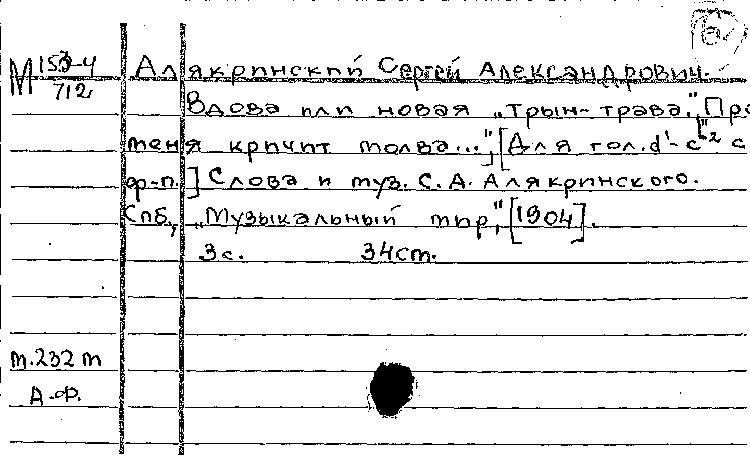 М 153-4
712
Алякринский Сергей Александрович.
Вдова или новая „Трын-трава". „Про
меня кричит молва...", [Для гол. d¹-c² с
ф-п.] Слова и муз. С.А. Алякринского.
Спб., „Музыкальный мир", [1904].
3с. 34см.
т.232 т
А.ф.